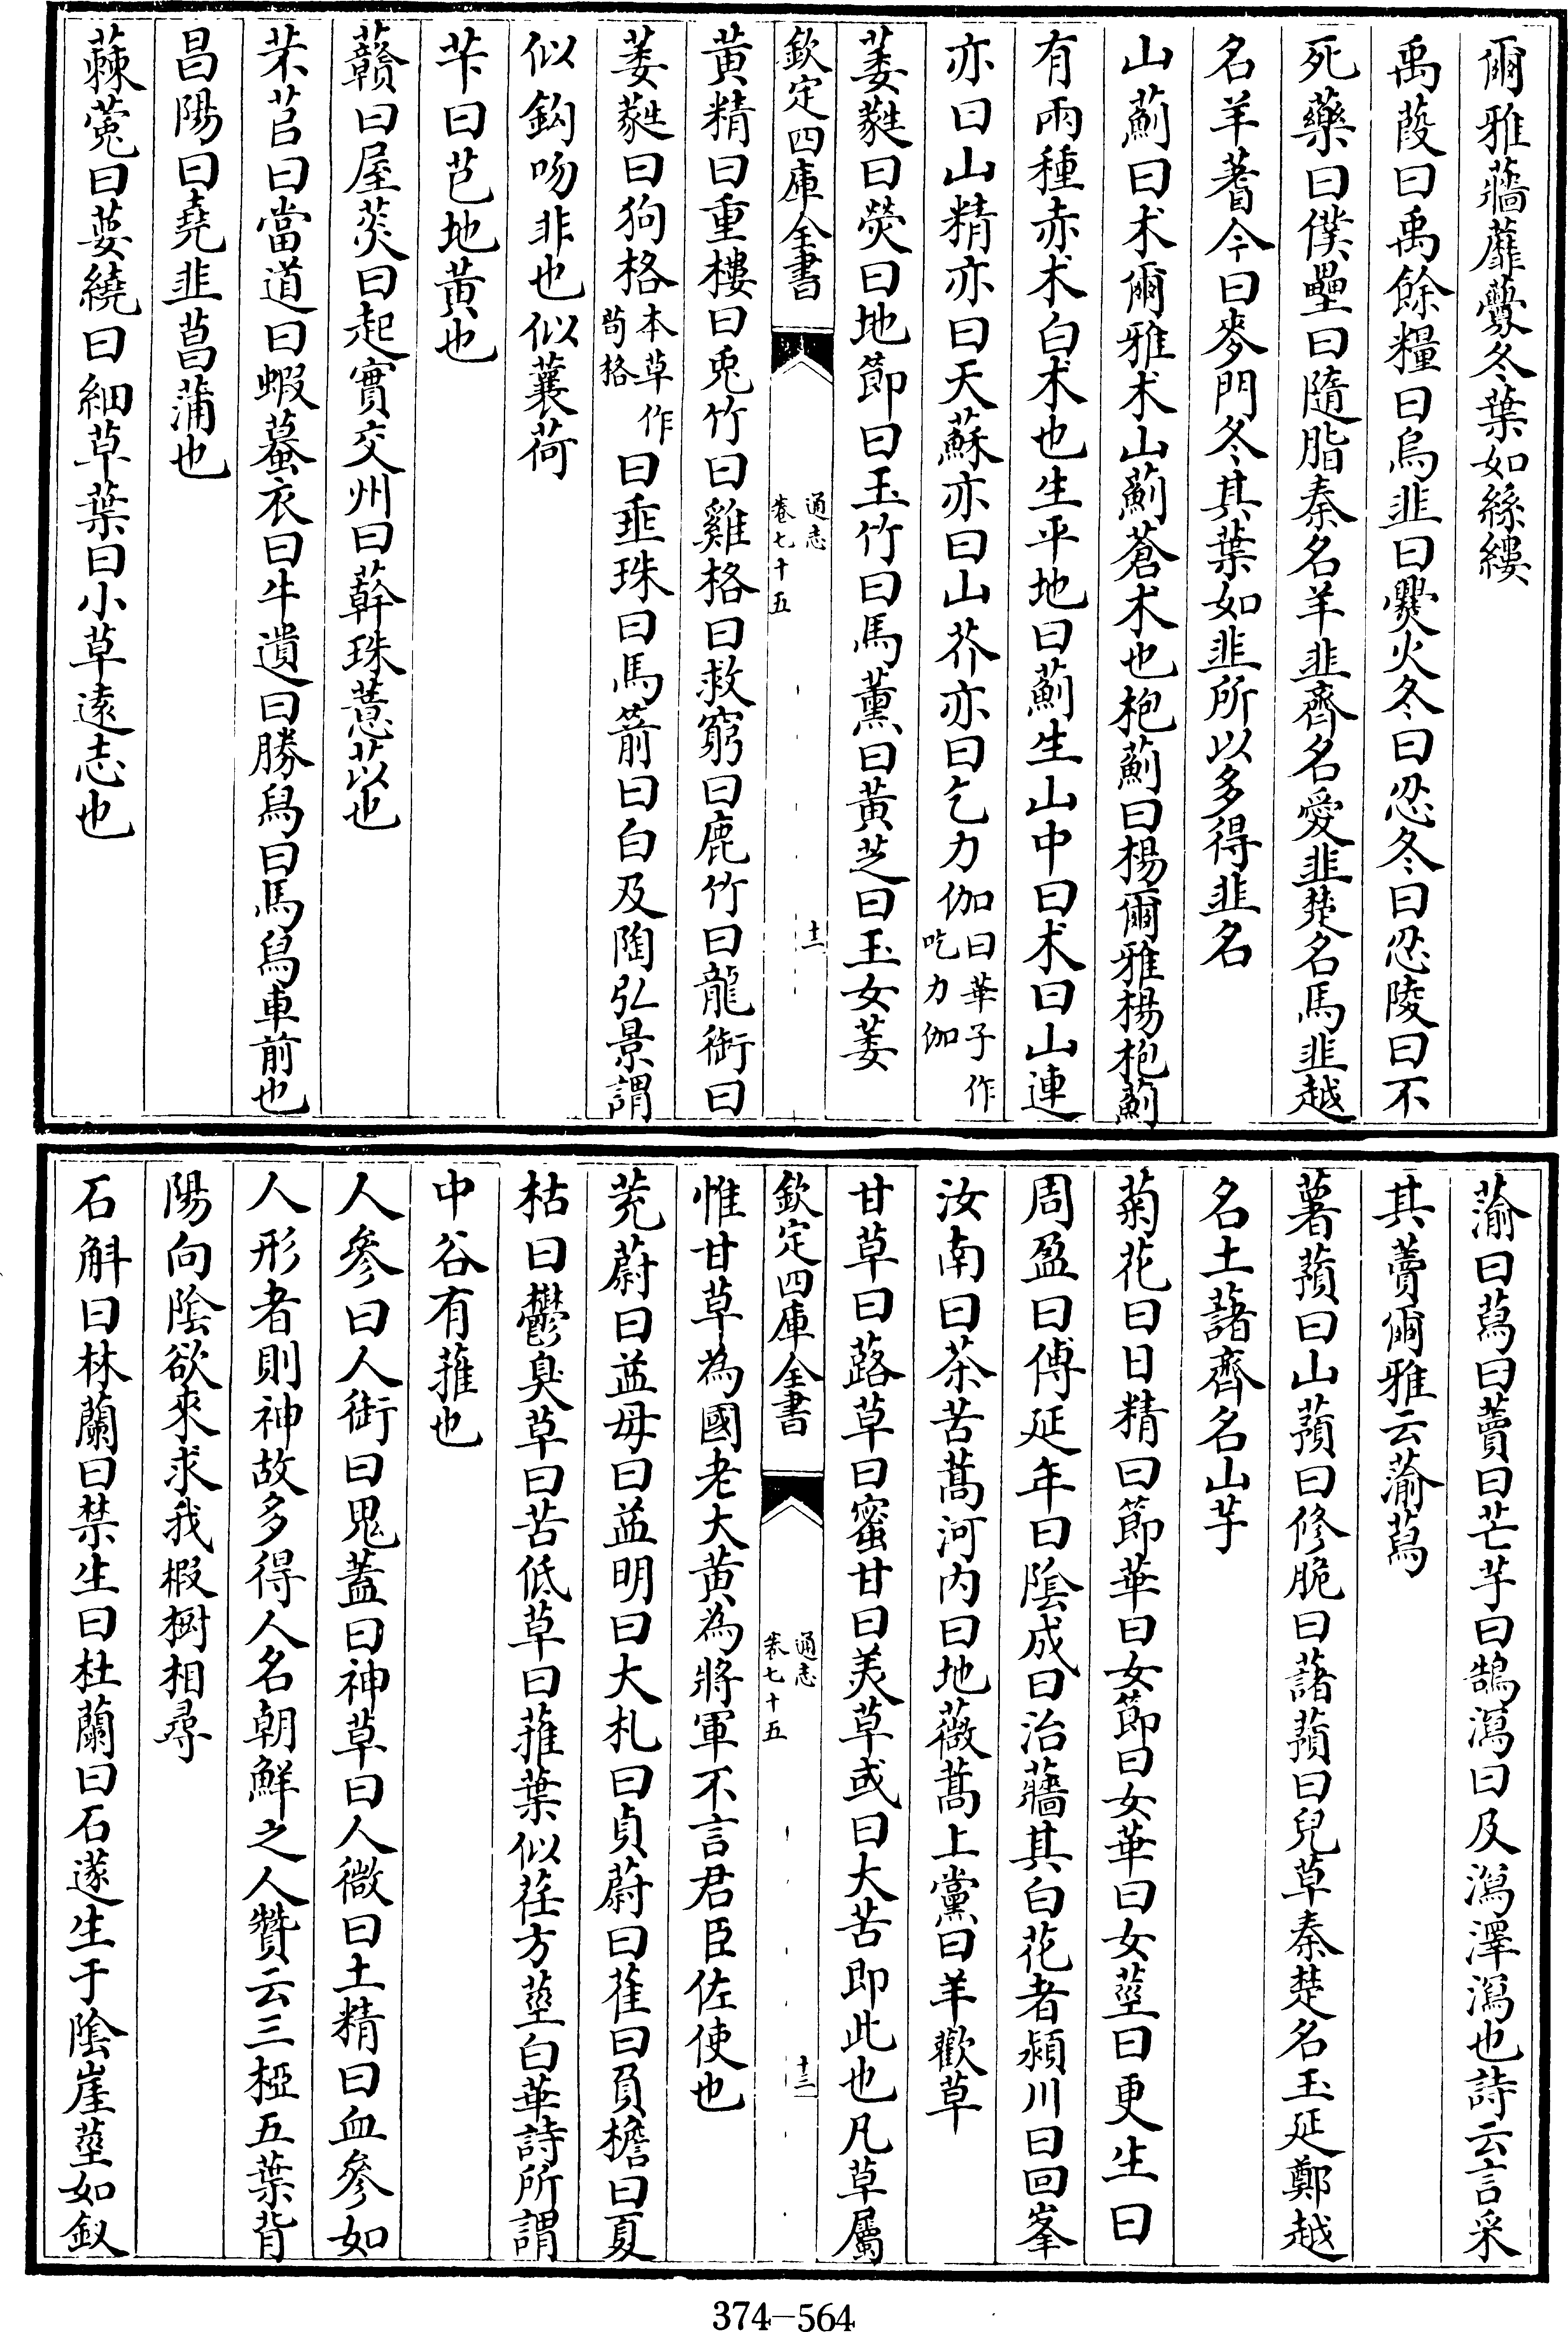 爾雅蘠蘼虋冬葉如絲縷
禹葭曰禹餘糧曰烏韭曰爨火冬曰忍冬曰忍陵曰不
死藥曰僕壘曰隨脂秦名羊韭齊名愛韭楚名馬韭越
名羊蓍今曰麥門冬其葉如韭所以多得韭名
山薊曰术爾雅术山薊蒼术也枹薊曰楊爾雅楊枹薊
有兩種赤术白术也生平地曰薊生山中曰术曰山連
亦曰山精亦曰天蘇亦曰山芥亦曰乞力伽曰華子作吃力伽
萎蕤曰熒曰地節曰玉竹曰馬薰曰黃芝曰玉女萎
欽定四庫全書
通志
卷七十五
十二
黃精曰重樓曰兎竹曰雞格曰救窮曰鹿竹曰龍銜曰
萎蕤曰狗格本草作茍格曰垂珠曰馬箭曰白及陶弘景謂
似鈎吻非也似蘘荷
芐曰芑地黃也
蘱曰屋菼曰起實交州曰䔅珠薏苡也
芣苢曰當道曰蝦蟇衣曰牛遺曰勝舄曰馬舄車前也
昌陽曰堯韭菖蒲也
蕀蒬曰葽繞曰細草葉曰小草遠志也
蕍曰蕮曰藚曰芒芋曰鵠瀉曰及瀉澤瀉也詩云言采
其藚爾雅云蕍蕮
薯蕷曰山蕷曰修脆曰藷蕷曰兒草秦楚名玉延鄭越
名土藷齊名山芋
菊花曰日精曰節華曰女節曰女華曰女莖曰更生曰
周盈曰傅延年曰陰成曰治蘠其白花者潁川曰回峯
汝南曰茶苦蒿河内曰地薇蒿上黨曰羊歡草
甘草曰蕗草曰蜜甘曰美草或曰大苦即此也凡草屬
欽定四庫全書
通志
卷七十五
十三
惟甘草為國老大黃為將軍不言君臣佐使也
茺蔚曰益母曰益明曰大札曰貞蔚曰萑曰負檐曰夏
枯曰鬱臭草曰苦低草曰蓷葉似荏方莖白華詩所謂
中谷有蓷也
人參曰人銜曰鬼蓋曰神草曰人微曰土精曰血參如
人形者則神故多得人名朝鮮之人贊云三椏五葉背
陽向陰欲來求我椵樹相尋
石斛曰林蘭曰禁生曰杜蘭曰石蓫生于陰崖莖如釵
374-564